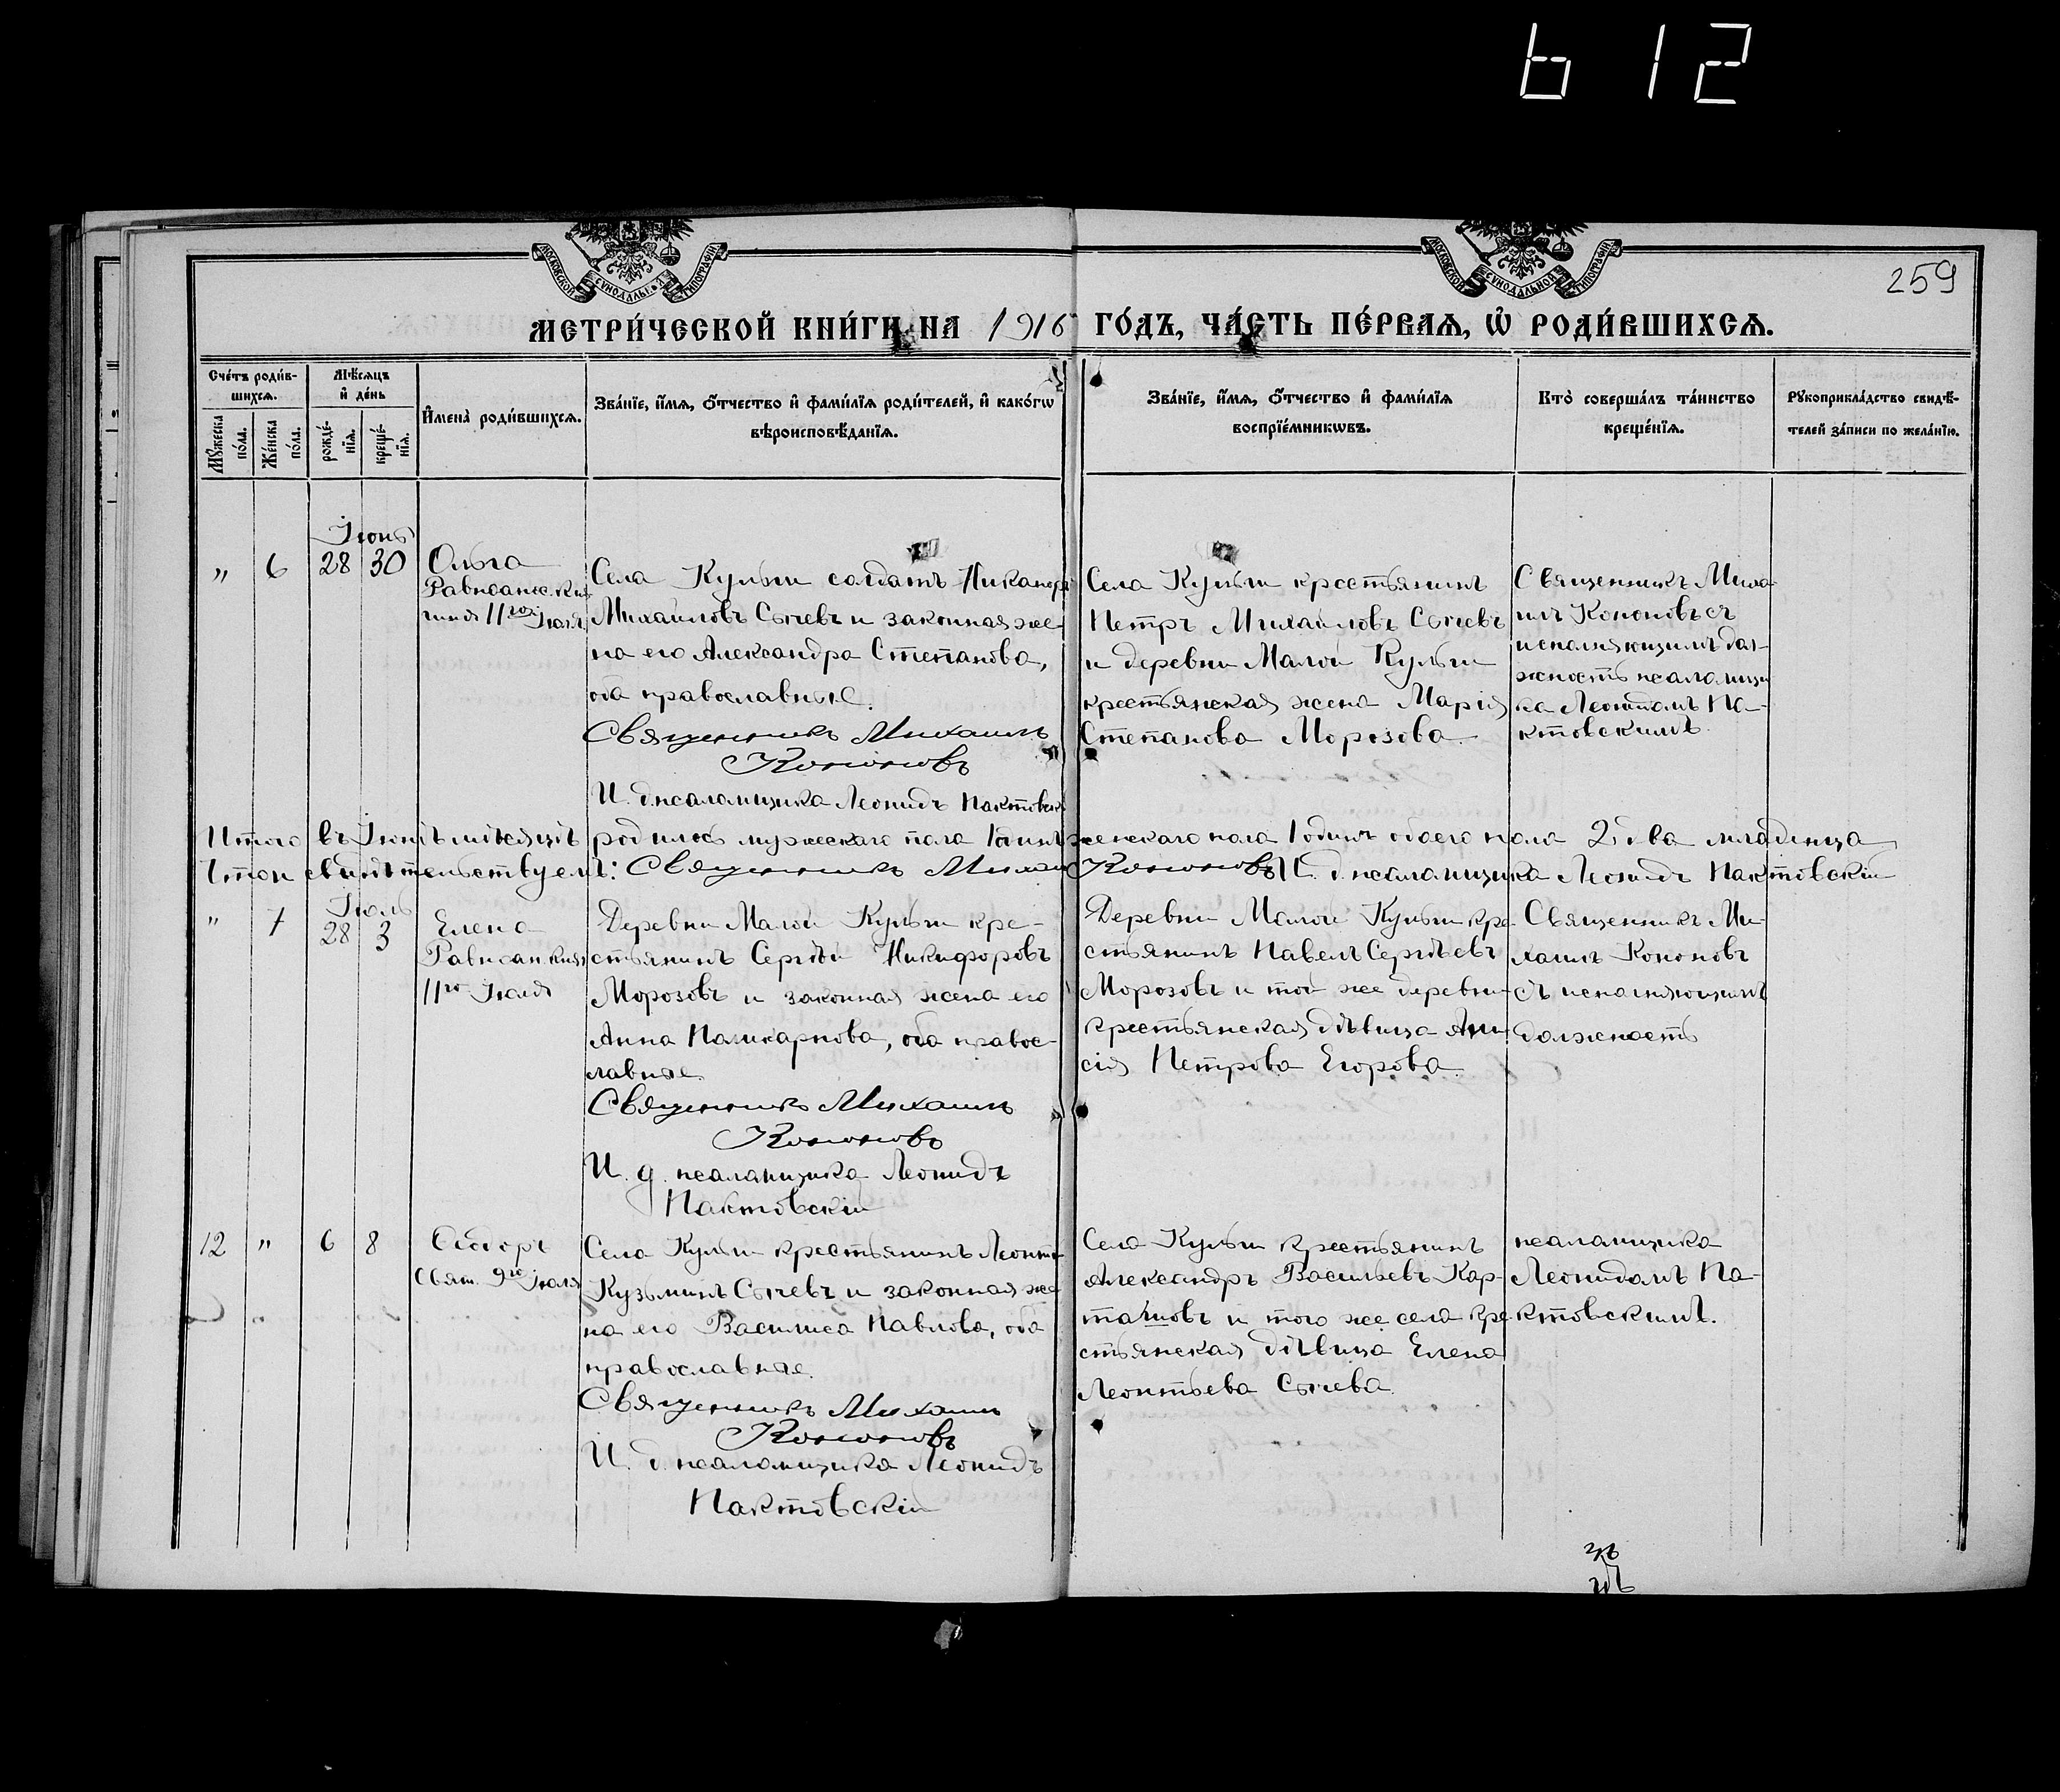 612
МОСКОВСКОЙ СУНОДАЛЬНОЙ ТИПОГРАФІИ
МОСКОВСКОЙ СУНОДАЛЬНОЙ ТИПОГРАФІИ
259
МЕТРИ́ЧЕСКОЙ КНИ́ГИ НА 1916 ГО́ДЪ, ЧА́СТЬ ПЕ́РВАѦ, Ѡ҆ РОДИ́ВШИХСѦ.
Сче́тъ роди́в-
шихсѧ.
Мꙋ́жеска по́ла.
Же́нска по́ла.
Мѣ́сѧцъ
и҆ де́нь
рожде́-
нїѧ.
креще́-
нїѧ.
И҆мена̀ роди́вшихсѧ.
Зва́нїе, и҆́мѧ, ѻ҆́тчество и҆ фами́лїѧ роди́телей, и҆ како́гѡ
вѣроисповѣ́данїѧ.
Зва́нїе, и҆́мѧ, ѻ҆́тчество и҆ фами́лїѧ
воспрїе́мникѡвъ.
Кто̀ соверша́лъ та́инство
креще́нїѧ.
Рꙋкоприкла́дство свидѣ́-
телей за́писи по жела́нїю.
Іюнь
" 6 28 30 Ольга
гиня 11го Іюля
Села Кульги солдатъ Никандръ
Михаиловъ Сычевъ и законная же-
на его Александра Степанова,
оба православные.
Священникъ Михаилъ
Кононовъ
И. д. псаломщика Леонидъ Пактовскій
Села Кульги крестьянинъ
Петръ Михаиловъ Сычевъ
и деревни Малой Кульги
крестьянская жена Марія
Степанова Морозова.
Священникъ Миха-
илъ Кононовъ съ
исполняющимъ дол-
жность псаломщи
ка Леонидомъ Па-
ктовскимъ.
Итого въ Іюнѣ мѣсяцѣ родилось мужескаго пола 1 одинъ женскаго пола 1 одинъ обоего пола 2 два младенца
свидѣтельствуемъ: Священникъ Михаилъ Кононовъ И. д. псаломщика Леонидъ Пактовскій
Іюль
" 7 28 3 Елена
11го Іюля
Деревни Малой Кульги кре-
стьянинъ Сергѣй Никифоровъ
Морозовъ и законная жена его
Анна Поликарпова, оба правос-
лавные.
Священникъ Михаилъ
Кононовъ
И. д. псаломщика Леонидъ
Пактовскій
Деревни Малой Кульги кре-
стьянинъ Павелъ Сергѣевъ
Морозовъ и той же деревни
крестьянская дѣвица Ани-
сія Петрова Егорова.
Священникъ Ми-
хаилъ Кононовъ
съ исполняющимъ
должность
12 " 6 8 Ѳеодоръ
Свят. 9го Іюля
Села Кульги крестьянинъ Леонтій
Кузьминъ Сычевъ и законная же-
на его Василиса Павлова, оба
православные.
Священникъ Михаилъ
Кононовъ
И. д. псаломщика Леонидъ
Пактовскій
Села Кульги крестьянинъ
Александръ Васильевъ Кар-
ташовъ и того же села кре-
стьянская дѣвица Елена
Леонтьева Сычева.
псаломщика
Леонидомъ Па-
ктовскимъ.